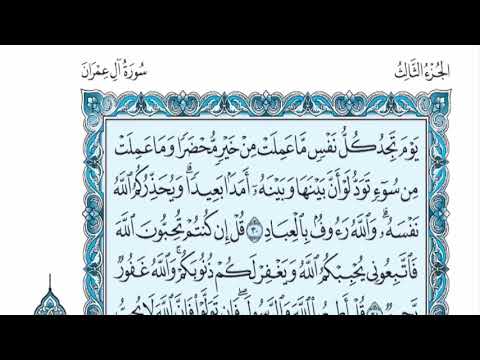 الجُزْءُ الثَّالِثُ
سُورَةُ آلِ عِمْرَانَ
يَوْمَ تَجِدُ كُلُّ نَفْسٍ مَّا عَمِلَتْ مِنْ خَيْرٍ مُّحْضَرًا وَمَا عَمِلَتْ
مِن سُوٓءٍ تَوَدُّ لَوْ أَنَّ بَيْنَهَا وَبَيْنَهُۥٓ أَمَدًۢا بَعِيدًا ۗ وَيُحَذِّرُكُمُ ٱللَّهُ
نَفْسَهُۥ ۗ وَٱللَّهُ رَءُوفٌۢ بِٱلْعِبَادِ ٣٠ قُلْ إِن كُنتُمْ تُحِبُّونَ ٱللَّهَ
فَٱتَّبِعُونِى يُحْبِبْكُمُ ٱللَّهُ وَيَغْفِرْ لَكُمْ ذُنُوبَكُمْ ۗ وَٱللَّهُ غَفُورٌ
رَّحِيمٌ ٣١ قُلْ أَطِيعُوا۟ ٱللَّهَ وَٱلرَّسُولَ ۖ فَإِن تَوَلَّوْا۟ فَإِنَّ ٱللَّهَ لَا يُحِبُّ